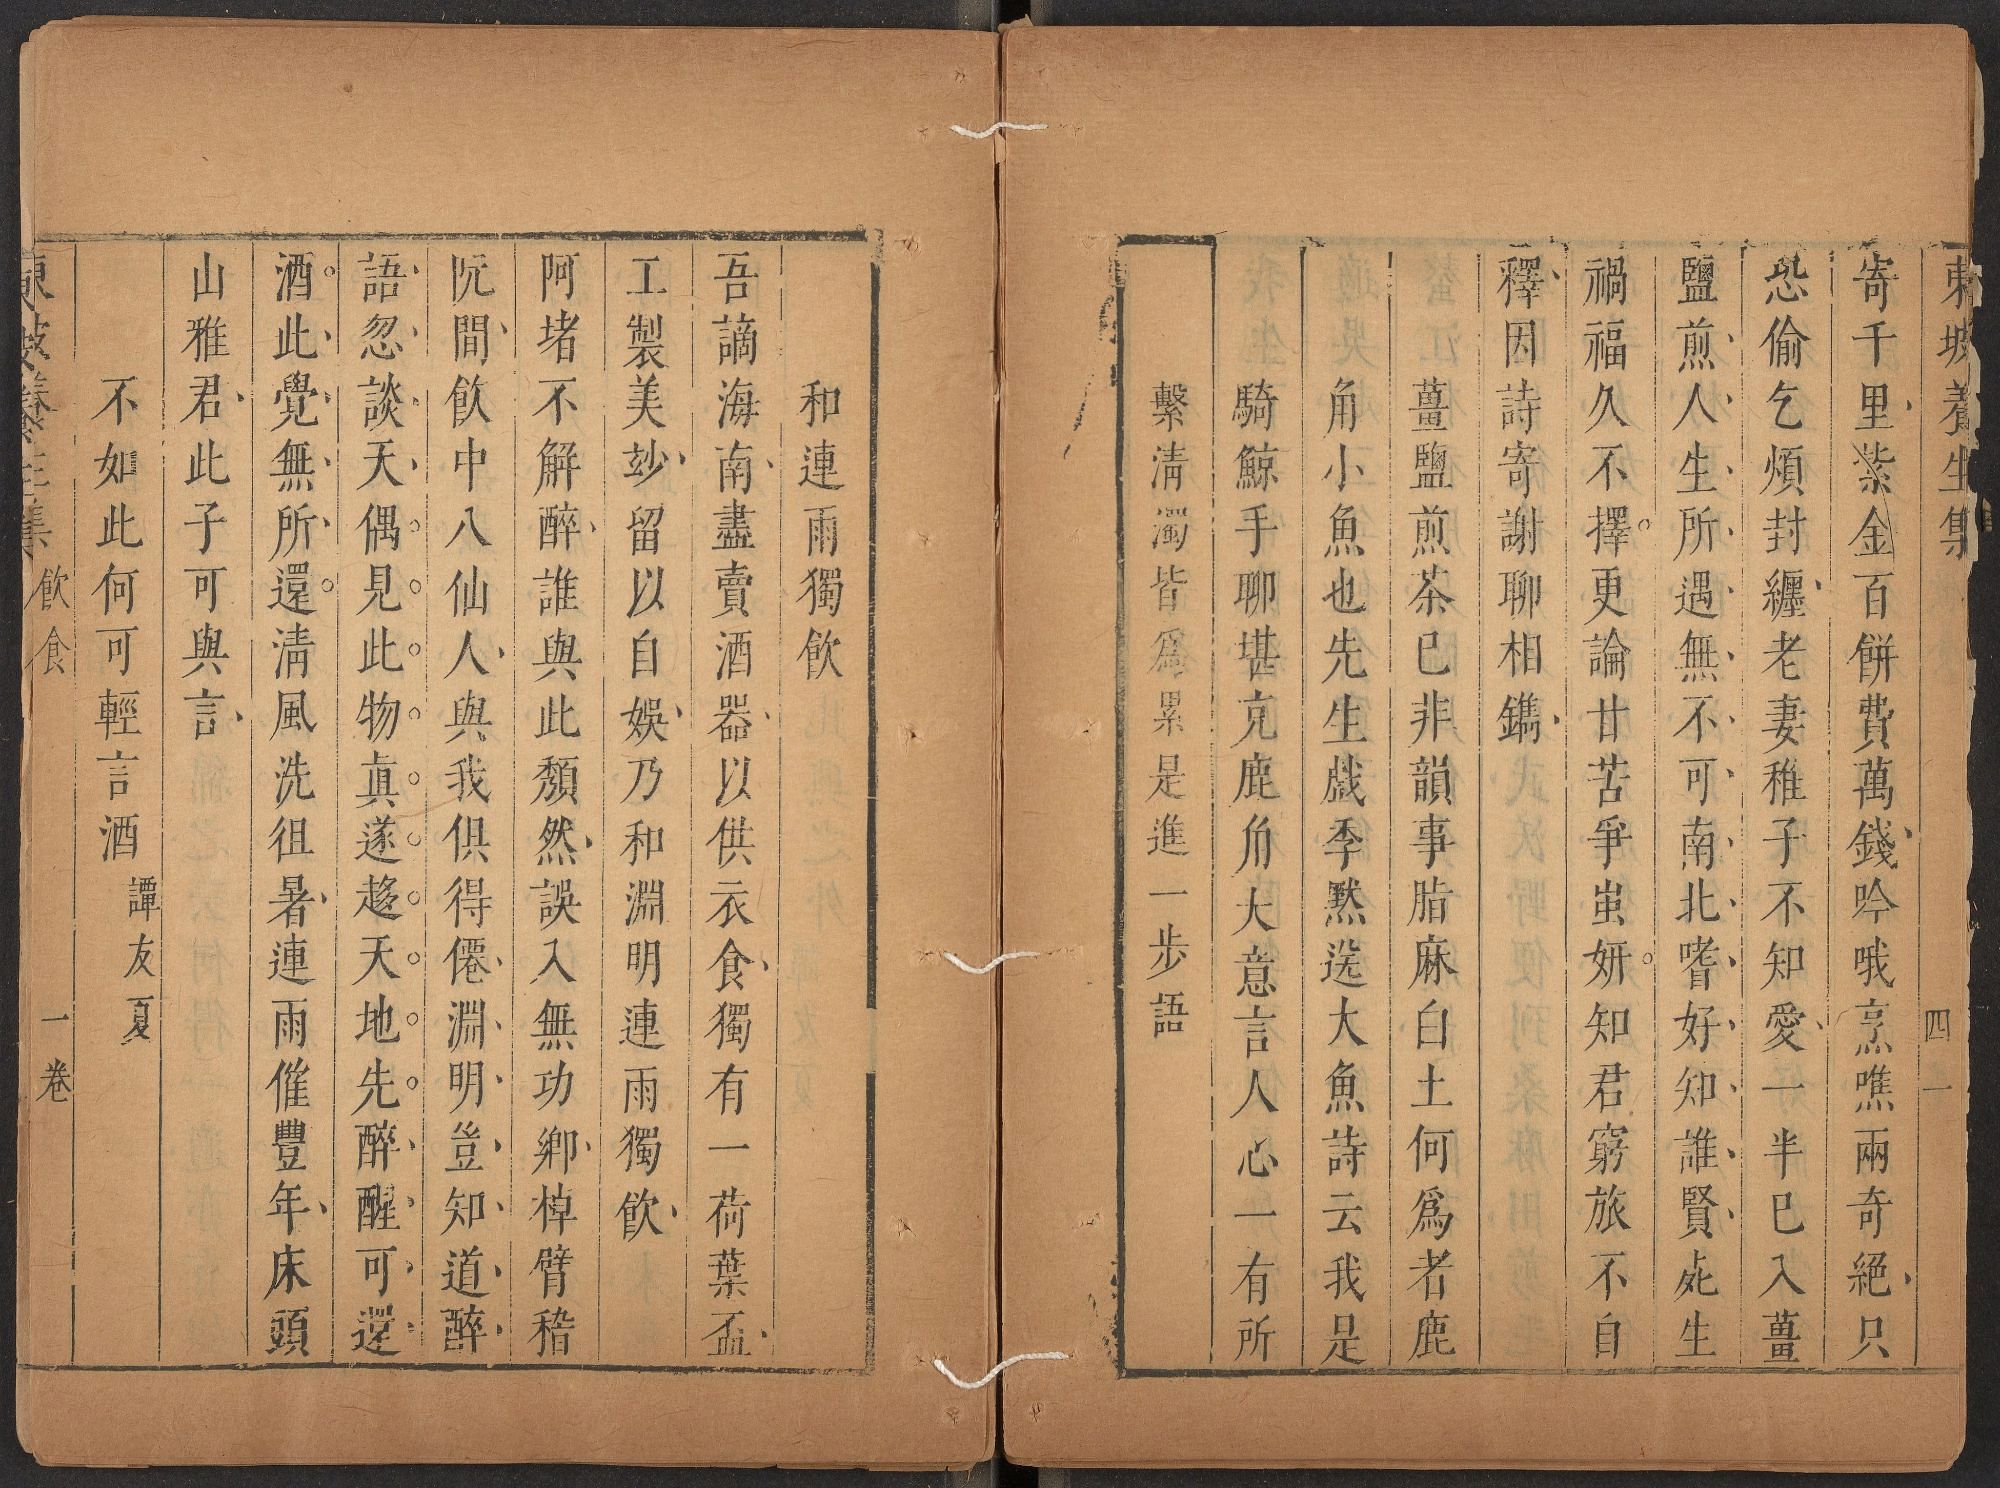 東坡養生集
四一
寄千里紫金百餅費萬錢吟哦烹噍兩奇絕只
恐偷乞煩封纏老妻稚子不知愛一半已入薑
鹽煎人生所遇無不可南北嗜好知誰賢死生
禍福久不擇更論甘苦爭蚩妍知君窮旅不自
釋因詩寄謝聊相鐫
薑鹽煎茶已非韻事脂麻白土何爲者鹿
角小魚也先生戲季默送大魚詩云我是
騎鯨手聊堪充鹿角大意言人心一有所
繫清濁皆爲累是進一步語
和連雨獨飲
吾謫海南盡賣酒器以供衣食獨有一荷葉盃
工製美玅留以自娛乃和淵明連雨獨飲
阿堵不解醉誰與此頹然誤入無功鄉棹臂嵇
阮間飲中八仙人與我俱得僊淵明豈知道醉
語忽談天偶見此物真遂趍天地先醉醒可還
酒此覺無所還清風洗徂暑連雨催豐年床頭
山雅君此子可與言
不如此何可輕言酒 譚友夏
東坡養生集 飲食 一卷